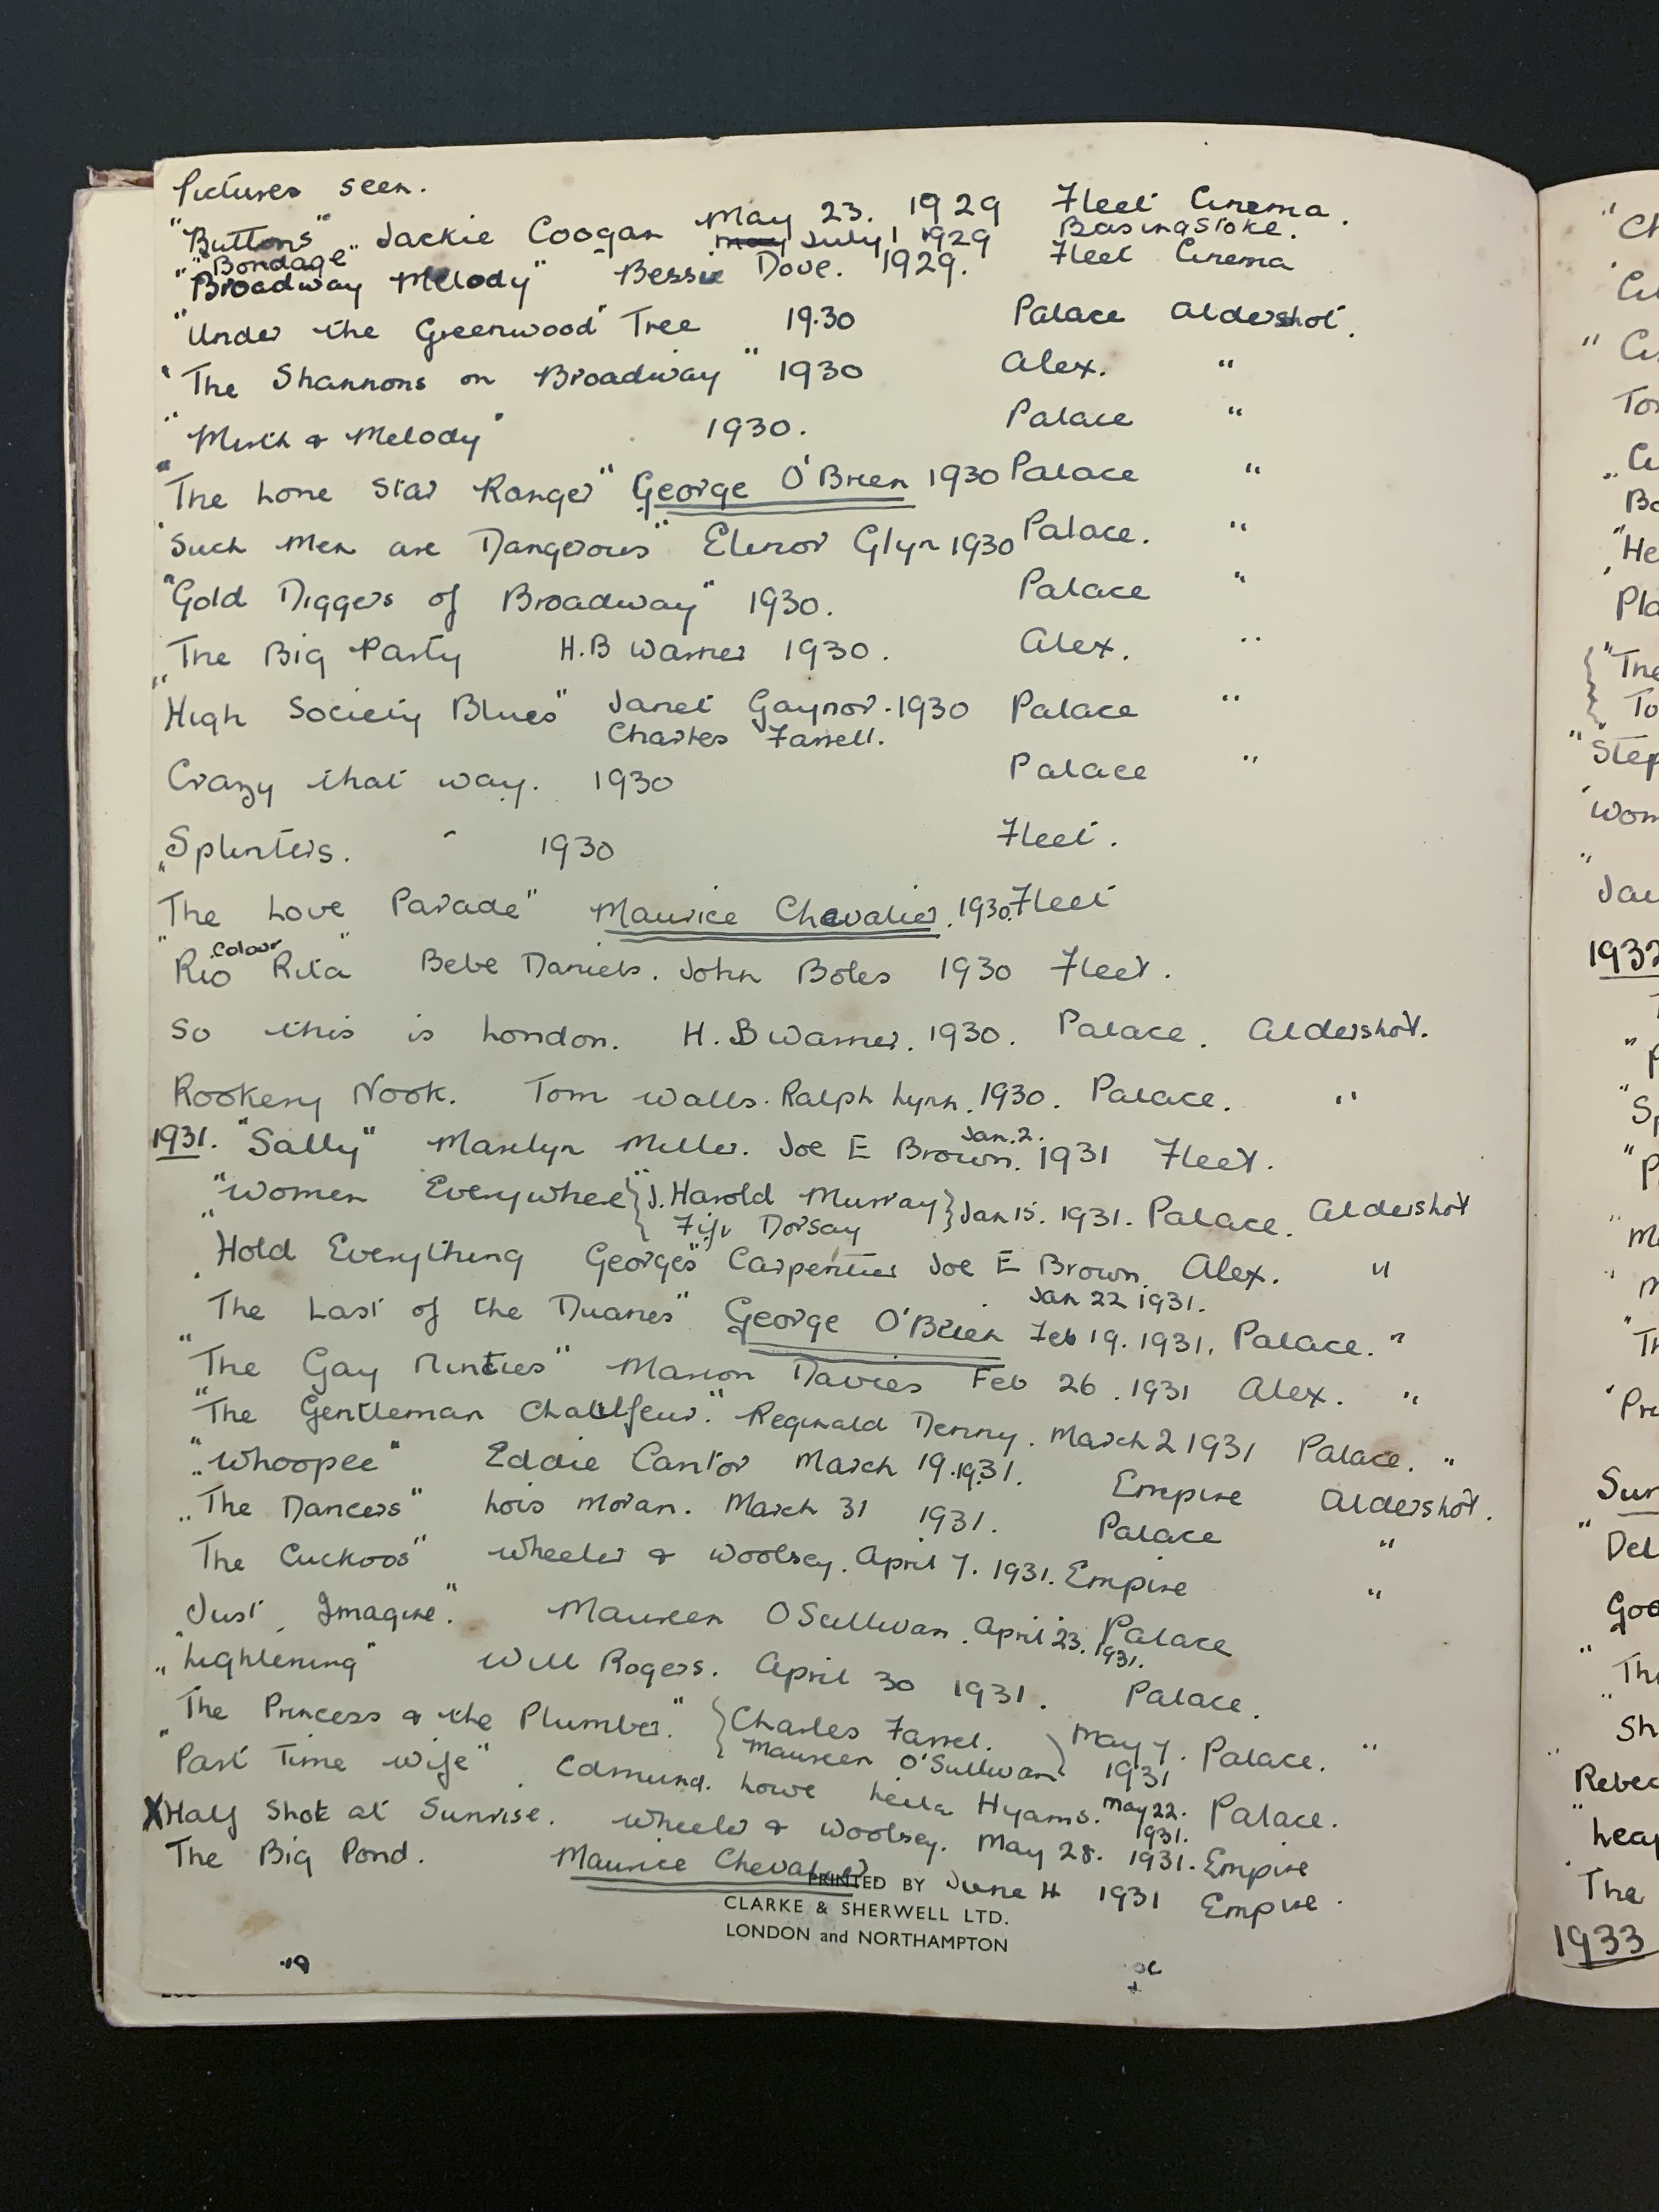 Pictures seen.
"Buttons" Jackie Coogan May 23. 1929 Fleet Cinema.
"Bondage" may July 1 1929 Basingstoke.
"Broadway Melody" Bessie Dove. 1929. Fleet Cinema
"Under the Greenwood Tree 19.30 Palace Aldershot.
"The Shannons on Broadway" 1930 Alex. "
"Mirth & Melody" 1930. Palace "
"The Lone Star Ranger" George O'Brien 1930 Palace "
"Such Men are Dangerous" Elinor Glyn 1930 Palace. "
"Gold Diggers of Broadway" 1930. Palace "
The Big Party H.B Warner 1930. Alex. "
"High Society Blues" Janet Gaynor. 1930 Palace "
Charles Farrell.
Crazy that way. 1930 Palace "
Splinters. 1930 Fleet.
"The Love Parade" Maurice Chevalier. 1930. Fleet
"Rio Rita" Colour Bebe Daniels. John Boles 1930 Fleet.
So this is London. H.B Warner. 1930. Palace. Aldershot.
Rookery Nook. Tom Walls. Ralph Lynn. 1930. Palace. "
1931. "Sally" Marilyn Miller. Joe E Brown. Jan. 2. 1931 Fleet.
"Women Everywhere" {J. Harold Murray} Jan 15. 1931. Palace. Aldershot
Fifi Dorsay
"Hold Everything" Georges Carpentier Joe E Brown. Alex. "
Jan 22 1931.
"The Last of the Duanes" George O'Brien Feb 19. 1931. Palace. "
"The Gay Nineties" Marion Davies Feb 26. 1931 Alex. "
"The Gentleman Chauffeur." Reginald Denny. March 2 1931 Palace. "
"Whoopee" Eddie Cantor March 19. 1931. Empire Aldershot.
"The Dancers" Lois Moran. March 31 1931. Palace "
"The Cuckoos" Wheeler & Woolsey. April 7. 1931. Empire "
"Just Imagine." Maureen OSullivan. April 23. 1931. Palace
"Lightening" Will Rogers. April 30 1931. Palace.
"The Princess & the Plumber." {Charles Farrel. } May 7. 1931 Palace. "
Maureen O'Sullivan
"Part Time Wife". Edmund. Lowe Leila Hyams. May 22. 1931. Palace.
X Half Shot at Sunrise. Wheeler & Woolsey. May 28. 1931. Empire
The Big Pond. Maurice Chevalier. June 4 1931 Empire.
PRINTED BY
CLARKE & SHERWELL LTD.
LONDON and NORTHAMPTON
"Ch
Tor
"He
Pla
"The
To
"Step
Wom
1932
"Sp
"Th
Sun
Del
Goo
Th
Sh
Rebec
Leap
The
1933